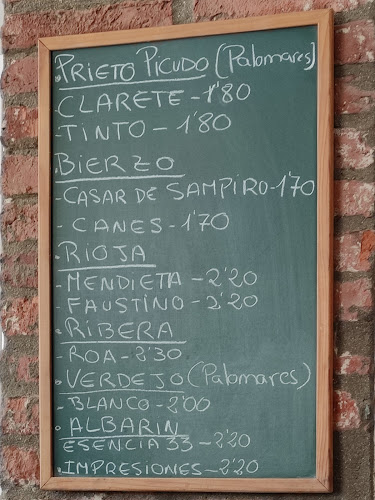 · PRIETO PICUDO (Palomares)
- CLARETE - 1'80
- TINTO - 1'80
· BIERZO
- CASAR DE SAMPIRO - 1'70
- CANES - 1'70
· RIOJA
- MENDIETA - 2'20
- FAUSTINO - 2'20
· RIBERA
- ROA - 2'30
· VERDEJO (Palomares)
- BLANCO - 2'00
· ALBARIN
ESENCIA 33 - 2'20
· IMPRESIONES - 2'20